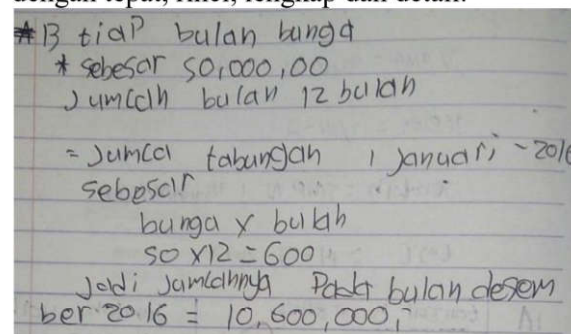 dengan tepat, rinci, lengkap dan detail.
*B tiap bulan bunga
* sebesar 50,000,00
Jumlah bulan 12 bulan
= Jumlal tabungan 1 januari - 2016
sebesar
bunga x bulan
50 x 12 = 600
Jadi jumlahnya Pada bulan desem
ber 2016 = 10,600,000,-